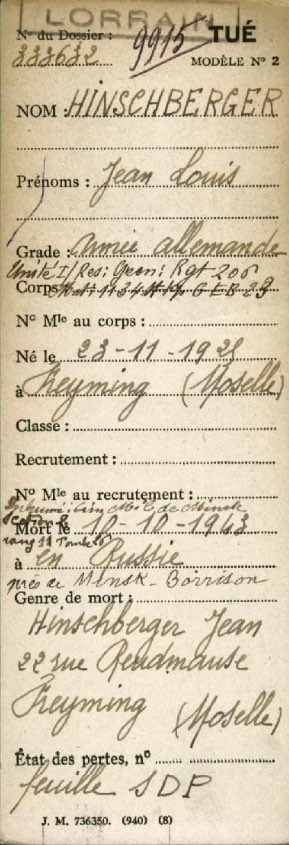 LORRAIN
N° du Dossier :
333632
9915
TUÉ
MODÈLE N° 2
NOM : HINSCHBERGER
Prénoms : Jean Louis
Grade : Armée allemande
Unité I/Res: Gren: Rgt 206
Corps :
N° Mle au corps :
Né le 23-11-1925
à Freyming (Moselle)
Classe :
Recrutement :
N° Mle au recrutement :
Inhumé : Cim. Mil. de Minsk
Mort le 10-10-1943
rang 11 Tombe
à en Russie
près de Minsk-Borrison
Genre de mort :
Hinschberger Jean
22 rue
Freyming (Moselle)
État des pertes, n°
feuille SDP
J. M. 736350. (940) (8)